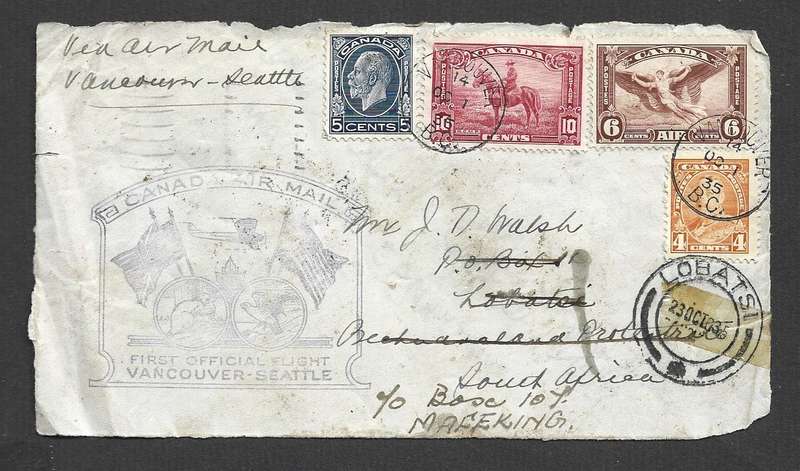 Via Air Mail
Vancouver - Seattle
CANADA
5 CENTS 5
CANADA
POSTAGE POSTAGE
10 CENTS 10
CANADA
POSTES POSTAGE
6 CENTS AIR CENTS 6
4 CENTS 4
VANCOUVER
14
OC 1
35
B.C.
VANCOUVER
14
OC 1
35
B.C.
CANADA AIR MAIL
FIRST OFFICIAL FLIGHT
VANCOUVER-SEATTLE
Mr J. D. Walsh
P.O. Box
Lobatsi
Bechuanaland Protec
South Africa
c/o Box 107.
MAFEKING.
LOBATSI
23 OCT 35